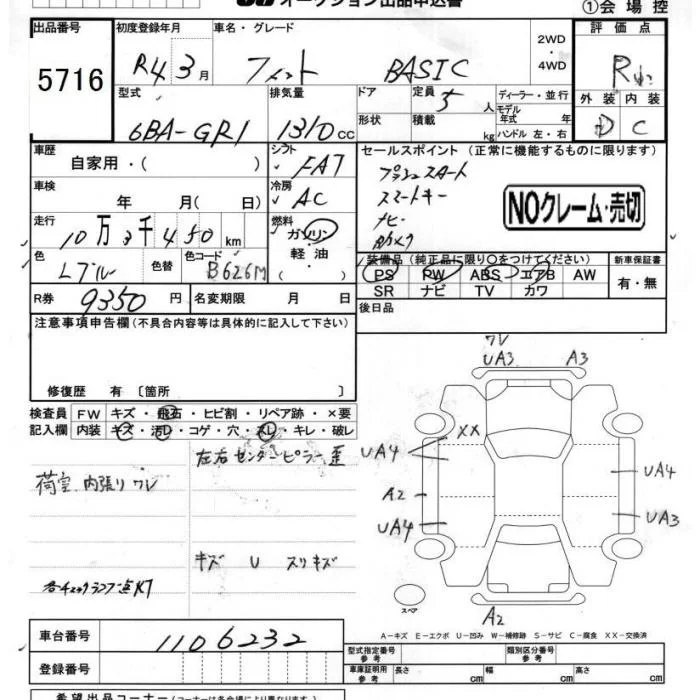 オークション出品申込書
①会場控
出品番号 5716
初度登録年月 R4 3月
車名・グレード フィット BASIC
2WD・4WD
評価点 R
外装 内装
D C
型式 6BA-GR1
排気量 1310cc
ドア 形状
定員 5人
積載 kg
ディーラー・並行
モデル年式 年
ハンドル 左・右
車歴 自家用・( )
シフト FAT
セールスポイント (正常に機能するものに限ります)
プッシュスタート
スマートキー
ナビ・
カメラ
NOクレーム・売切
車検 年 月( 日)
冷房 AC
走行 10万3千450km
燃料 ガソリン・軽油・( )
色 Lブルー
色替
色コード B626M
装備品 (純正品に限り○をつけてください)
PS PW ABS エアB AW
SR ナビ TV カワ
新車保証書
有・無
R券 9350円
名変期限 月 日
後日品
注意事項申告欄(不具合内容等は具体的に記入して下さい)
修復歴 有 〔箇所 〕
検査員記入欄
FW キズ・飛石・ヒビ割・リペア跡・×要
内装 キズ・汚レ・コゲ・穴・スレ・キレ・破レ
左右センターピラー歪
荷室内張りワレ
キズ U スリキズ
各チェックランプ点灯
ワレ
UA3 A3
XX
UA4 UA4
A2
UA4 UA3
スペア
A2
A-キズ E-エクボ U-凹み W-補修跡 S-サビ C-腐食 XX-交換済
車台番号 1106232
登録番号
型式指定番号 参考
類別区分番号 参考
車庫証明用 参考 長さ cm 幅 cm 高さ cm
希望出品コーナー(コーナーは各会場により異なります)